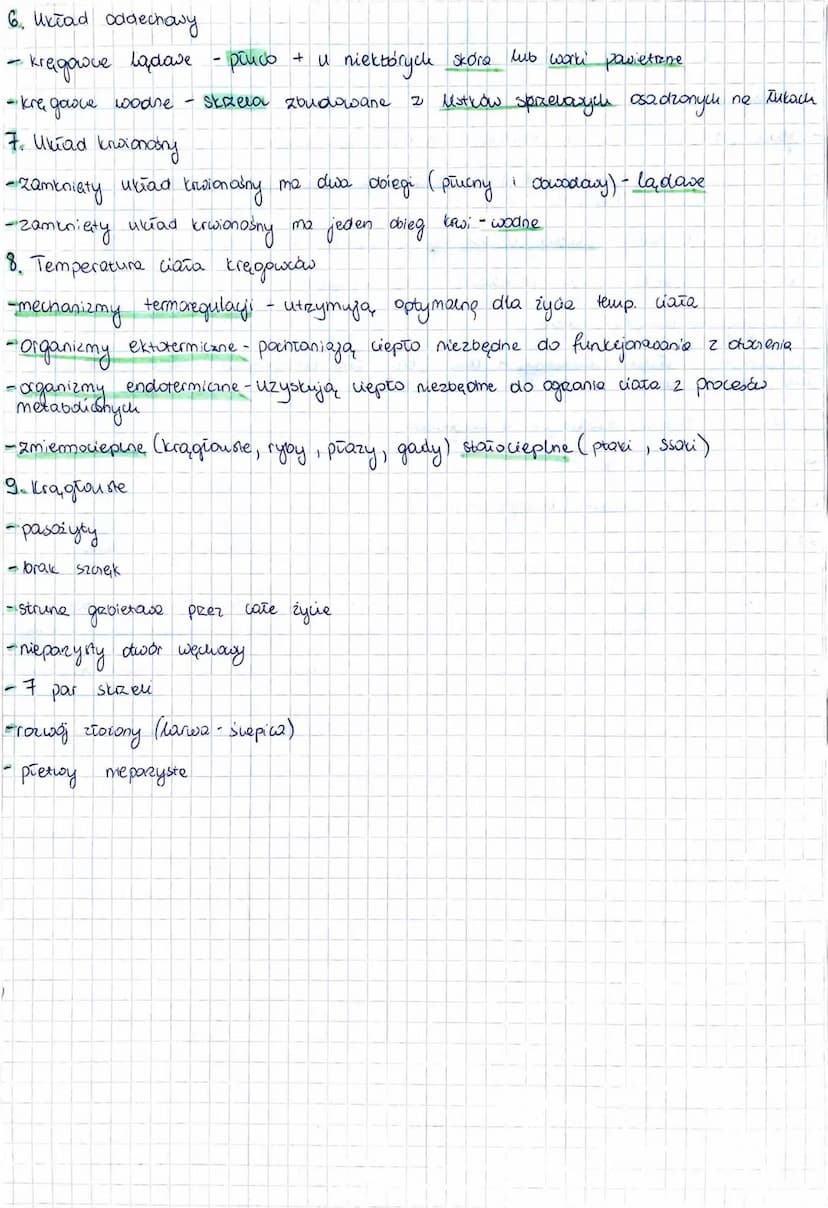 6. Układ oddechowy
- kręgowce lądowe - płuco + u niektórych skóra lub worki powietrzne
- kręgowce wodne - skrzela zbudowane z listków sprzelowych osadzonych na łukach
7. Układ krwionośny
- zamknięty układ krwionośny ma dwa obiegi (płucny i obwodowy) - lądowe
- zamknięty układ krwionośny ma jeden obieg krwi - wodne
8. Temperatura ciała kręgowców
- mechanizmy termoregulacji - utrzymują optymalną dla życia temp. ciała
- organizmy ektotermiczne - pochłaniają ciepło niezbędne do funkcjonowania z otoczenia
- organizmy endotermiczne - uzyskują ciepło niezbędne do ogrzania ciała z procesów
metabolicznych
- zmiennocieplne (krągłouste, ryby, płazy, gady) stałocieplne (ptaki, ssaki)
9. Krągłouste
- pasożyty
- brak szczęk
- struna grzbietowa przez całe życie
- nieparzysty otwór węchowy
- 7 par skrzeli
- rozwój złożony (larwa - ślepica)
- płetwy nieparzyste